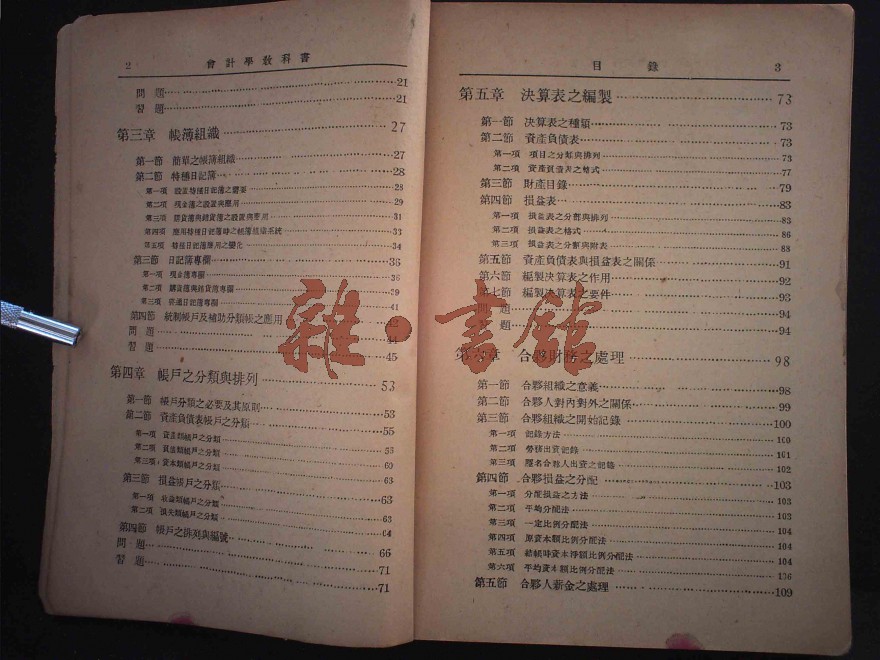 2 會計學教科書
問 題 21
習 題 21
第三章 帳簿組織 27
第一節 簡單之帳簿組織 27
第二節 特種日記簿 28
第一項 設置特種日記簿之需要 28
第二項 現金簿之設置與應用 29
第三項 購貨簿與銷貨簿之設置與應用 31
第四項 應用特種日記簿時之帳簿組織系統 33
第五項 特種日記簿應用之變化 34
第三節 日記簿專欄 36
第一項 現金簿專欄 36
第二項 購貨簿與銷貨簿專欄 39
第三項 普通日記簿專欄 41
第四節 統制帳戶及補助分類帳之應用
問 題 44
習 題 45
第四章 帳戶之分類與排列 53
第一節 帳戶分類之必要及其原則 53
第二節 資產負債表帳戶之分類 55
第一項 資產類帳戶之分類
第二項 負債類帳戶之分類
第三項 資本類帳戶之分類
第三節 損益帳戶之分類 63
第一項 收益類帳戶之分類 63
第二項 損失類帳戶之分類 64
第四節 帳戶之排列與編號 66
問 題 71
習 題 71
目 錄 3
第五章 決算表之編製 73
第一節 決算表之種類 73
第二節 資產負債表 73
第一項 項目之分類與排列 73
第二項 資產負債表之格式 77
第三節 財產目錄 79
第四節 損益表 83
第一項 損益表之分類與排列 83
第二項 損益表之格式 86
第三項 損益表之分類與附表 88
第五節 資產負債表與損益表之關係 91
第六節 編製決算表之作用 92
第七節 編製決算表之要件 93
問 題 94
習 題 94
第六章 合夥財務之處理 98
第一節 合夥組織之意義 98
第二節 合夥人對內對外之關係 99
第三節 合夥組織之開始記錄 100
第一項 記錄方法 100
第二項 勞務出資記錄 101
第三項 隱名合夥人出資之記錄 102
第四節 合夥損益之分配 103
第一項 分配損益之方法 103
第二項 平均分配法 103
第三項 一定比例分配法 104
第四項 原資本額比例分配法 104
第五項 結帳時資本淨額比例分配法 104
第六項 平均資本額比例分配法 106
第五節 合夥人薪金之處理 109
雜·書館